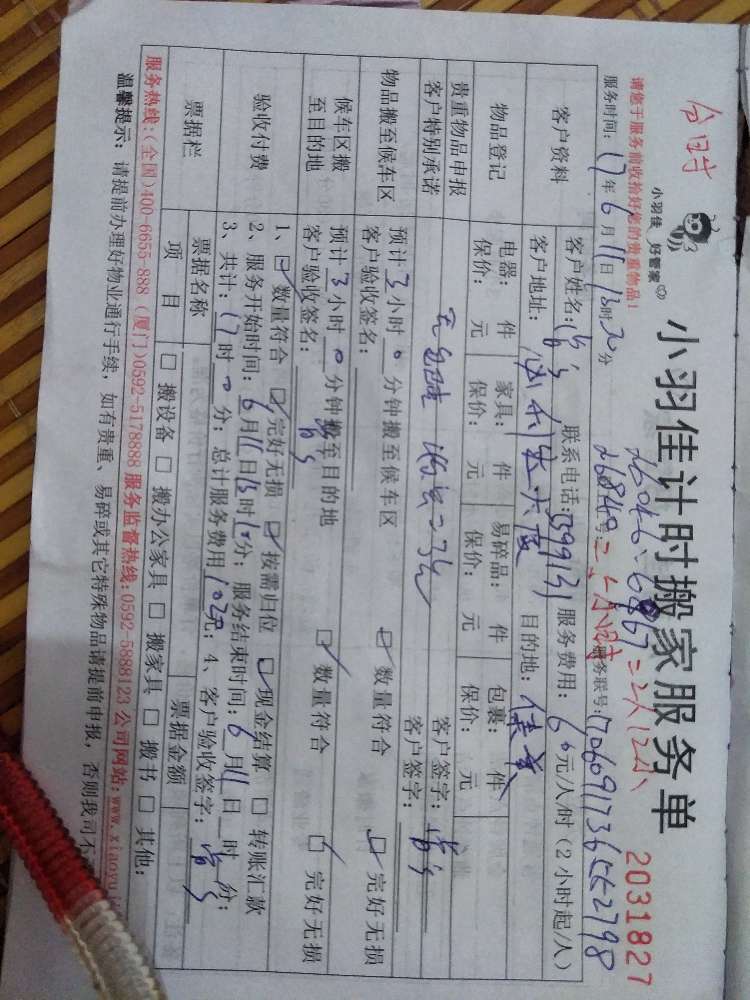 小羽佳计时搬家服务单
2031827
小羽佳 好管家
请您于服务前收拾好您的贵重物品!
服务时间: 17年6月11日13时30分
服务联号: 1706091736552798
客户资料
客户姓名: 联系电话: 服务费用: 60元/人/时(2小时起/人)
客户地址: 目的地:
物品登记
电器: 件 家具: 件 易碎品: 件 包裹: 件
保价: 元 保价: 元 保价: 元 保价: 元
贵重物品申报 客户签字:
客户特别承诺 客户签字:
物品搬至候车区
预计3小时0分钟搬至候车区 数量符合 完好无损
客户验收签名:
候车区搬至目的地
预计3小时0分钟搬至目的地 数量符合 完好无损
客户验收签名:
验收付费
1、 数量符合 完好无损 按需归位 现金结算 转账汇款
2、服务开始时间: 6月11日13时10分; 服务结束时间: 6月11日 时 分;
3、共计: 17时0分; 总计服务费用1020元; 4、客户验收签字:
票据栏
票据名称 票据金额
项目 搬设备 搬办公家具 搬家具 搬书 其他:
服务热线:(全国)400-6655-888 (厦门)0592-5178888 服务监督热线:0592-5888123 公司网站:www.xiaoyu
温馨提示: 请提前办理好物业通行手续, 如有贵重、易碎或其它特殊物品请提前申报, 否则我司不